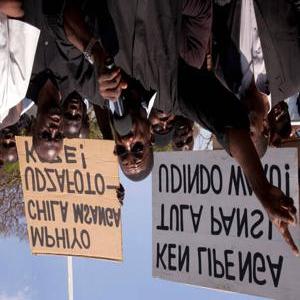 MPHIYO
CHILA MSANGA
UDZAFOTO-
KOZE!
KEN LIPENGA
TULA PANSI
UDINDO WAKO!